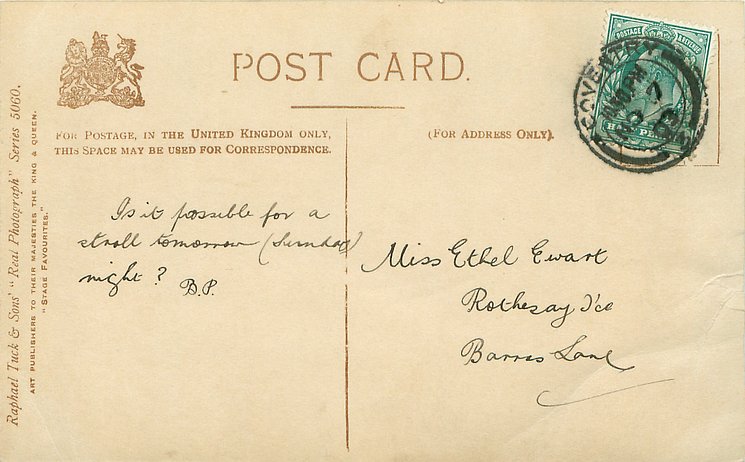 POST CARD.
FOR POSTAGE, IN THE UNITED KINGDOM ONLY,
THIS SPACE MAY BE USED FOR CORRESPONDENCE.
(FOR ADDRESS ONLY).
POSTAGE REVENUE
HALF PENNY
COVENTRY
Is it possible for a
stroll tomorrow (Sunday)
night?
B.P.
Miss Ethel Ewart
Rothesay
Barras Lane
Raphael Tuck & Sons' "Real Photograph" Series 5060.
ART PUBLISHERS TO THEIR MAJESTIES THE KING & QUEEN.
"STAGE FAVOURITES."